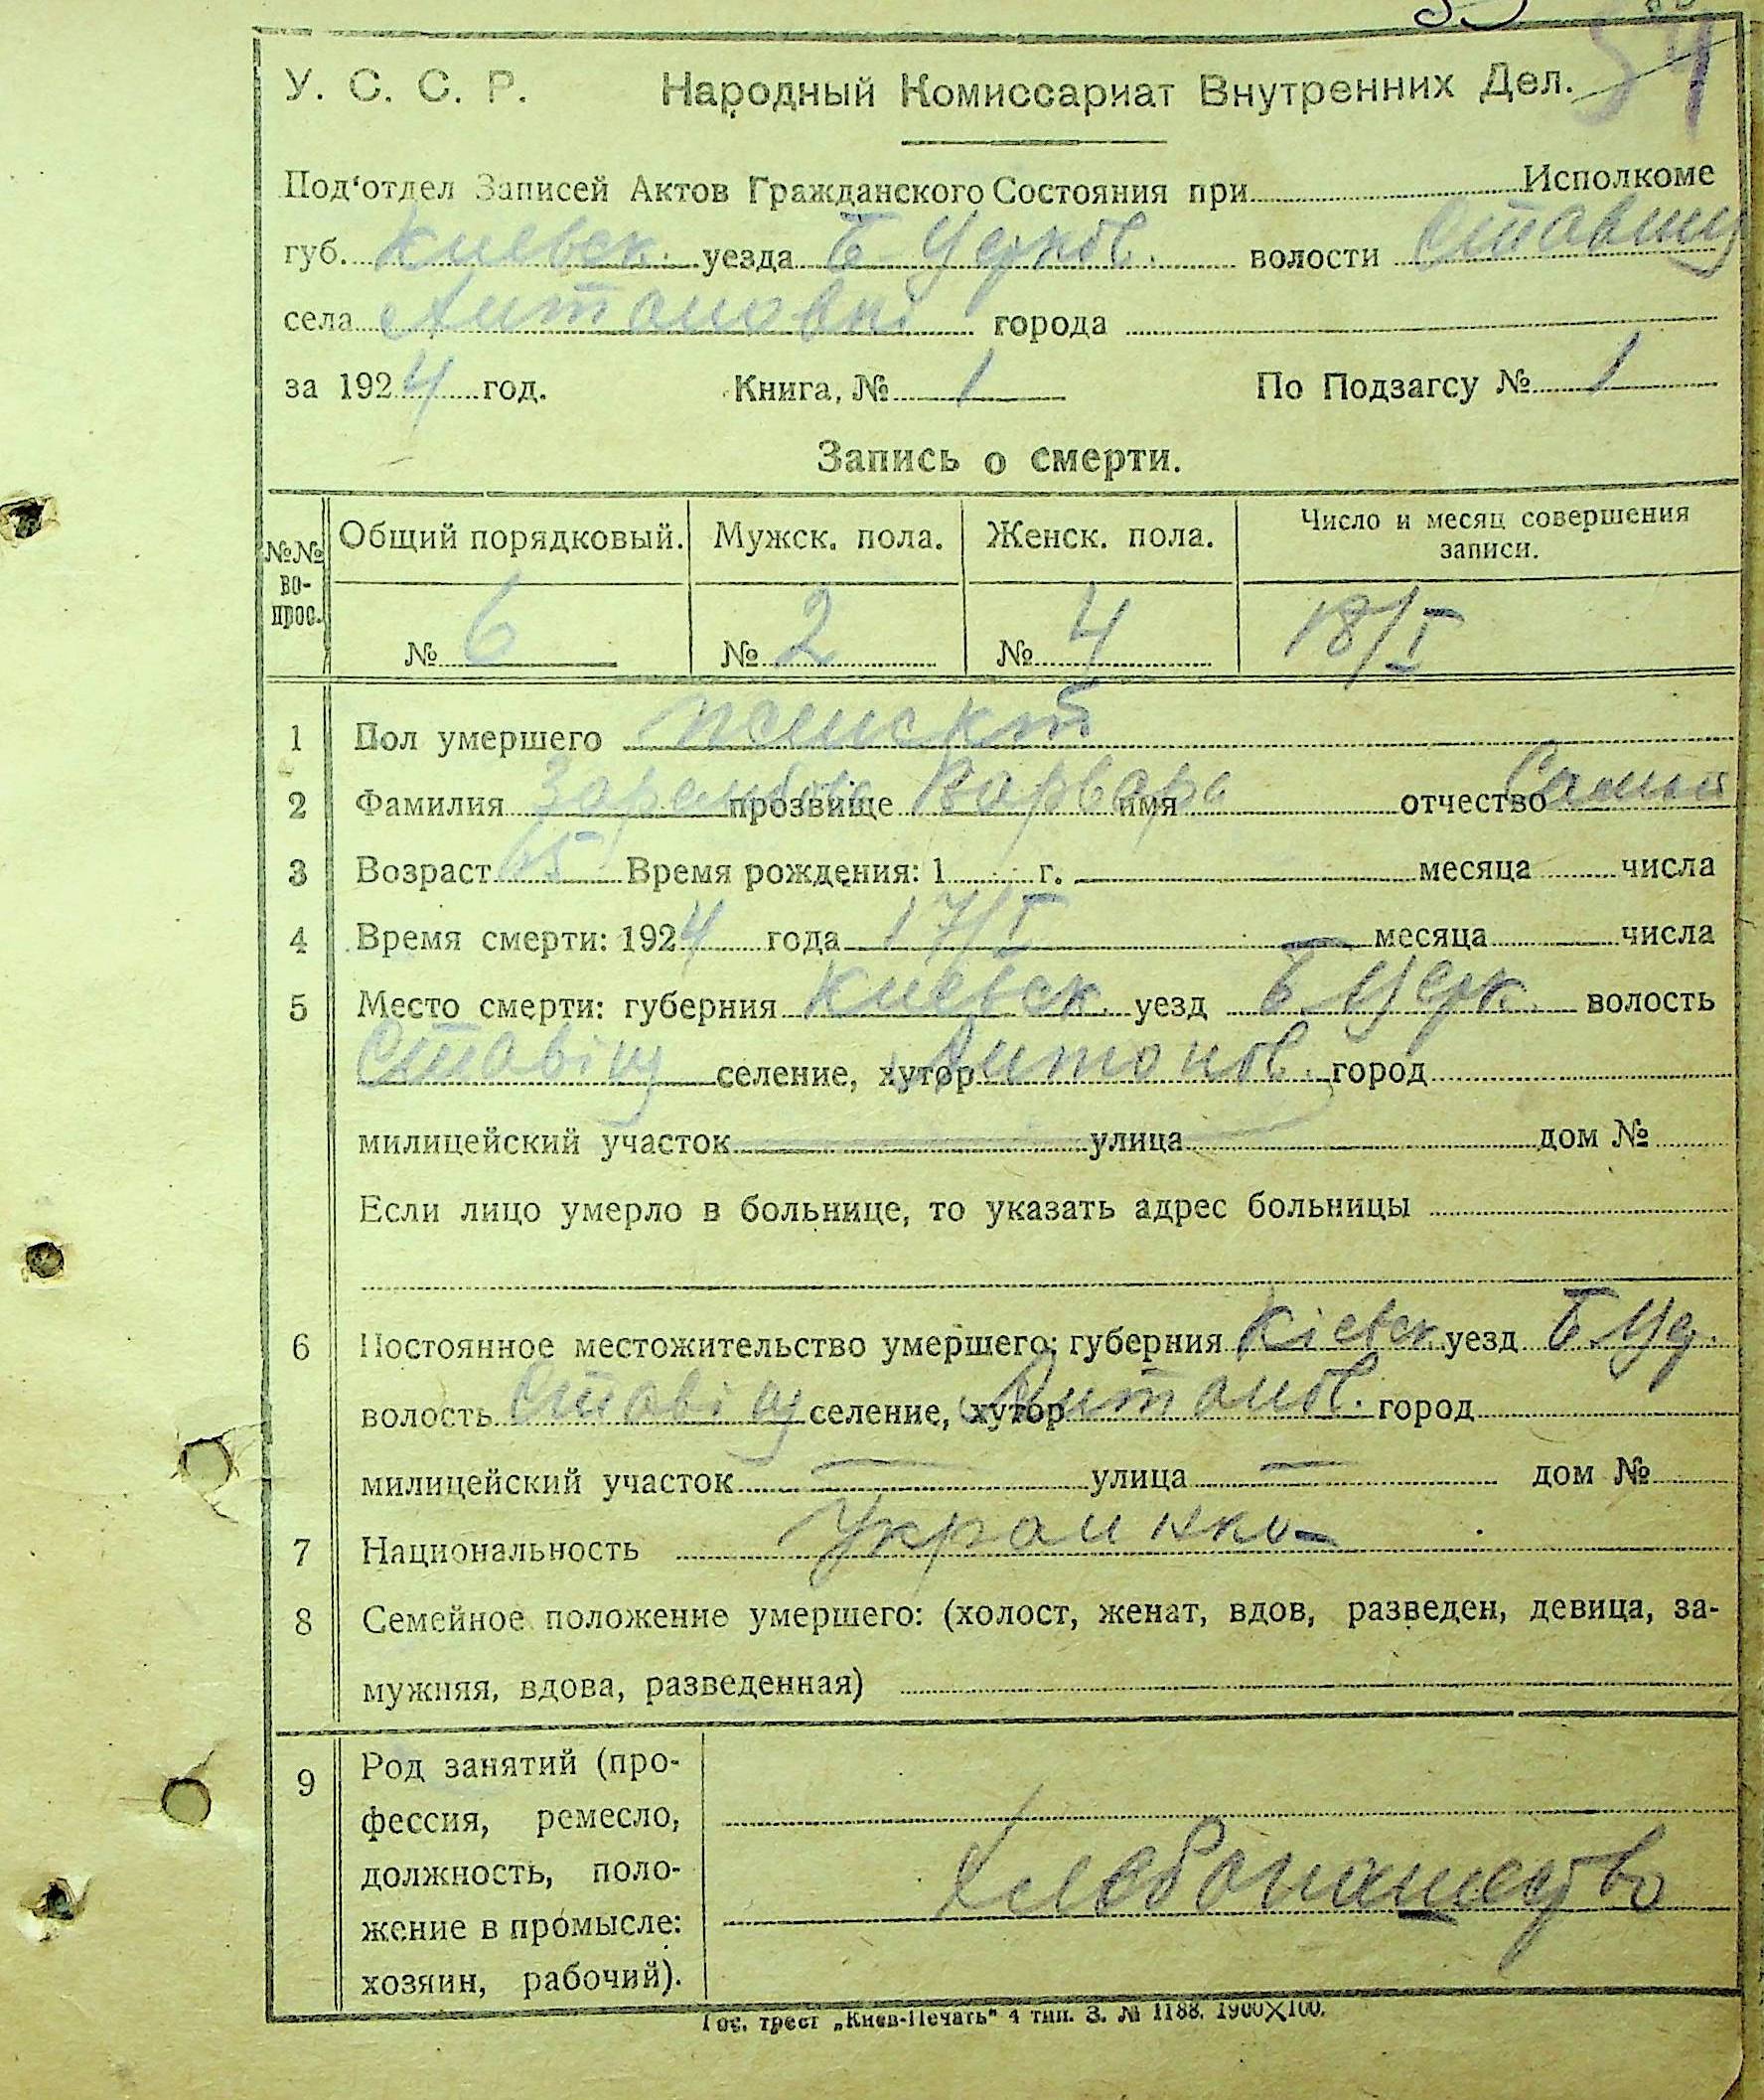 54
У. С. С. Р. Народный Комиссариат Внутренних Дел.
Под'отдел Записей Актов Гражданского Состояния при Исполкоме
губ. Киевск. уезда Б Церков. волости Ставищ
села Антоновки города
за 1924 год. Книга, № 1 По Подзагсу № 1
Запись о смерти.
№№ во-прос. Общий порядковый. Мужск. пола. Женск. пола. Число и месяц совершения записи.
№ 6 № 2 № 4 18/I
1 Пол умершего женск
2 Фамилия прозвище Варвара имя отчество
3 Возраст 65 Время рождения: 1 г. месяца числа
4 Время смерти: 1924 года 17/I месяца числа
5 Место смерти: губерния Киевск. уезд Б Церк. волость
Ставіщ селение, хутор Антонов. город
милицейский участок улица дом №
Если лицо умерло в больнице, то указать адрес больницы
6 Постоянное местожительство умершего: губерния Кіевск. уезд Б. Це.
волость Ставіщ селение, хутор Антонов. город
милицейский участок — улица — дом №
7 Национальность Украинка
8 Семейное положение умершего: (холост, женат, вдов, разведен, девица, за-
мужняя, вдова, разведенная)
9 Род занятий (про-
фессия, ремесло,
должность, поло-
жение в промысле:
хозяин, рабочий).
Хлебопашество
Гос. трест „Киев-Печать" 4 тип. З. № 1188. 1900×100.